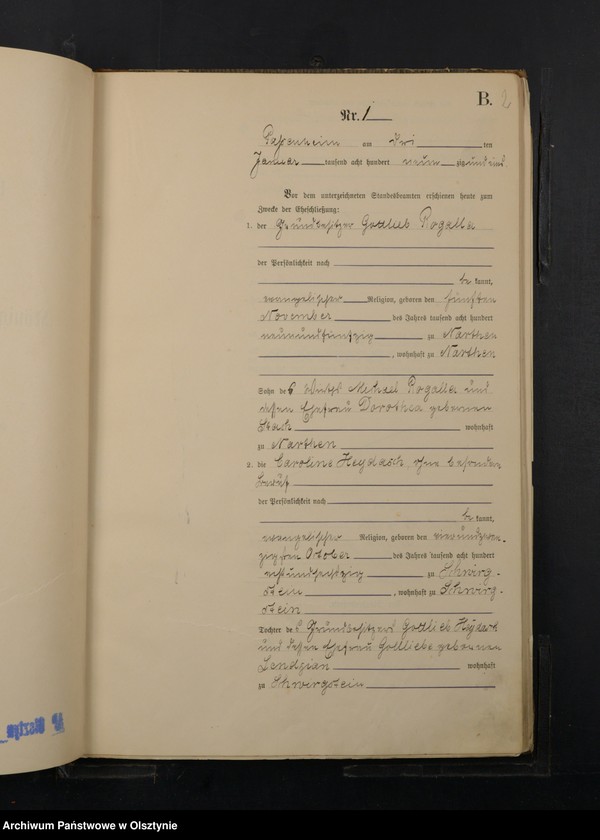 B. 2
Nr. 1
am drei ten
Januar tausend acht hundert neun zig und eins
Vor dem unterzeichneten Standesbeamten erschienen heute zum
Zwecke der Eheschließung:
1. der Grundbesitzer Gottlieb Rogalla
der Persönlichkeit nach
be kannt,
evangelischer Religion, geboren den fünften
November des Jahres tausend acht hundert
neunundfünfzig zu Narthen
, wohnhaft zu Narthen
Sohn des Michael Rogalla und
dessen Ehefrau Dorothea geborenen
wohnhaft
zu Narthen
2. die Caroline Heydasch, ohne besonderen
Beruf
der Persönlichkeit nach
be kannt,
evangelischer Religion, geboren den vierundzwan-
zigsten October des Jahres tausend acht hundert
achtundsechszig zu Schwirg-
stein , wohnhaft zu Schwirg-
stein
Tochter des Grundbesitzers Gottlieb Heydasch
und dessen Ehefrau Gottliebe geborenen
wohnhaft
zu Schwirgstein
Archiwum Państwowe w Olsztynie